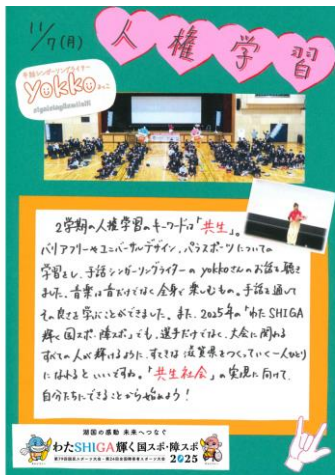 11/7(月)
人権学習
手話シンガーソングライター
yokko
よっこ
2学期の人権学習のキーワードは「共生」。
バリアフリーやユニバーサルデザイン、パラスポーツについての
学習をし、手話シンガーソングライターの yokkoさんのお話も聴き
ました。音楽は音だけでなく全身で楽しむもの。手話を通して
その良さを学ぶことができました。また、2025年の「わたSHIGA
輝く国スポ・障スポ」でも、選手だけでなく、大会に関わる
すべての人が輝けるように、すてきな滋賀県をつくっていく一人ひとり
になれるといいですね。「共生社会」の実現に向けて、
自分たちにできることから始めよう!
湖国の感動 未来へつなぐ
わたSHIGA輝く国スポ・障スポ
第79回国民スポーツ大会・第24回全国障害者スポーツ大会
2025